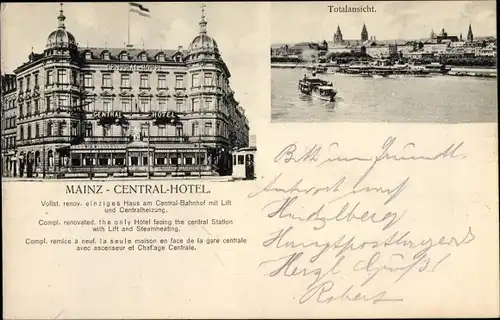 Totalansicht.
CENTRAL-HOTEL
CENTRAL HOTEL
MAINZ - CENTRAL-HOTEL.
Vollst. renov. einziges Haus am Central-Bahnhof mit Lift
und Centralheizung.
Compl. renovated. the only Hôtel facing the central Station
with Lift and Steamheating.
Compl. remice à neuf. la seule maison en face de la gare centrale
avec ascenseur et Chaf'age Centrale.
Bitte um
Antwort auf
Heidelberg
Hauptpostlagernd
Herzl. Gruß!
Robert